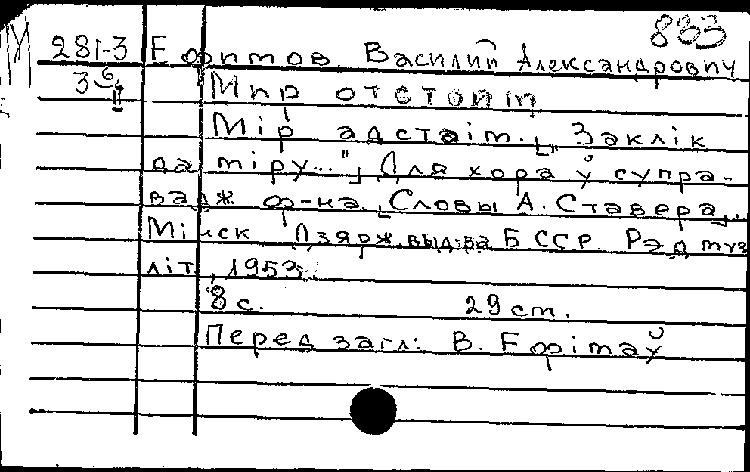 М 883
281-3 Ефимов Василий Александрович
36 Мир отстоим
Мір адстаім. ["Заклік
да міру..."] Для хора ў супра-
вадж. ф-на. [Словы А. Ставера].
Мінск Дзярж.выд-ва БССР. Рэд муз
літ, 1953.
8 с. 29 cm.
Перед загл: В. Ефімаў